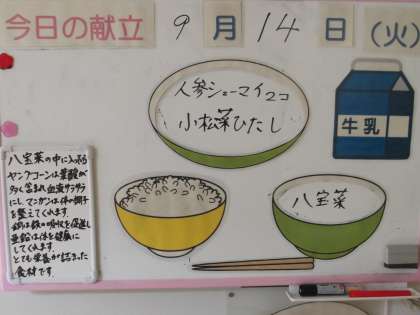 今日の献立 9月14日(火)
人参シューマイ2コ
小松菜ひたし
牛乳
八宝菜
八宝菜の中に入っている
ヤングコーンは葉酸が
多く含まれ血液サラサラ
にし、マンガンは体の調子
を整えてくれます。
銅は鉄の吸収を促進し
亜鉛は体を健康に
してくれます。
とても栄養が詰まった
食材です。